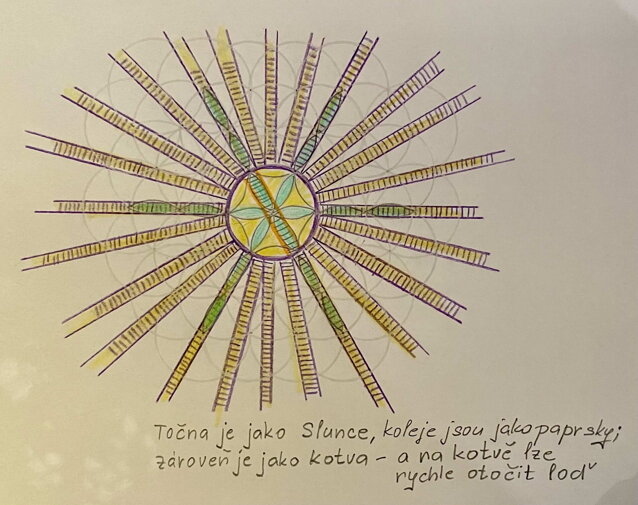 Točna je jako Slunce, koleje jsou jako paprsky;
zároveň je jako kotva - a na kotvě lze
rychle otočit loď